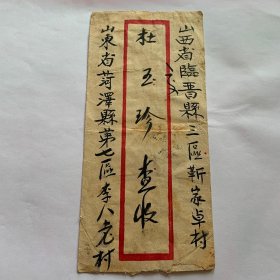 山西省臨晋縣三區靳家卓村
杜玉珍查收
山東省菏澤縣第七區李八老村